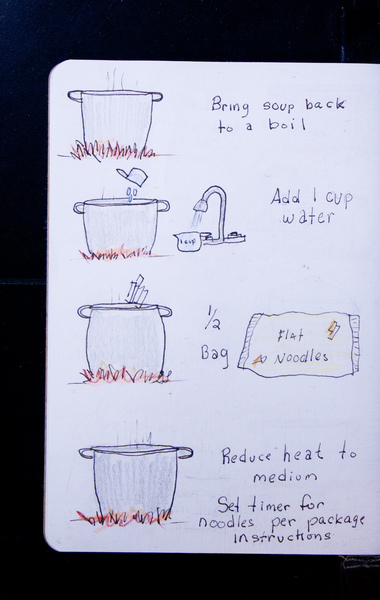 Bring soup back
to a boil
Add 1 cup
water
1 cup
1/2
Bag
Flat
Noodles
Reduce heat to
medium
Set timer for
noodles per package
instructions